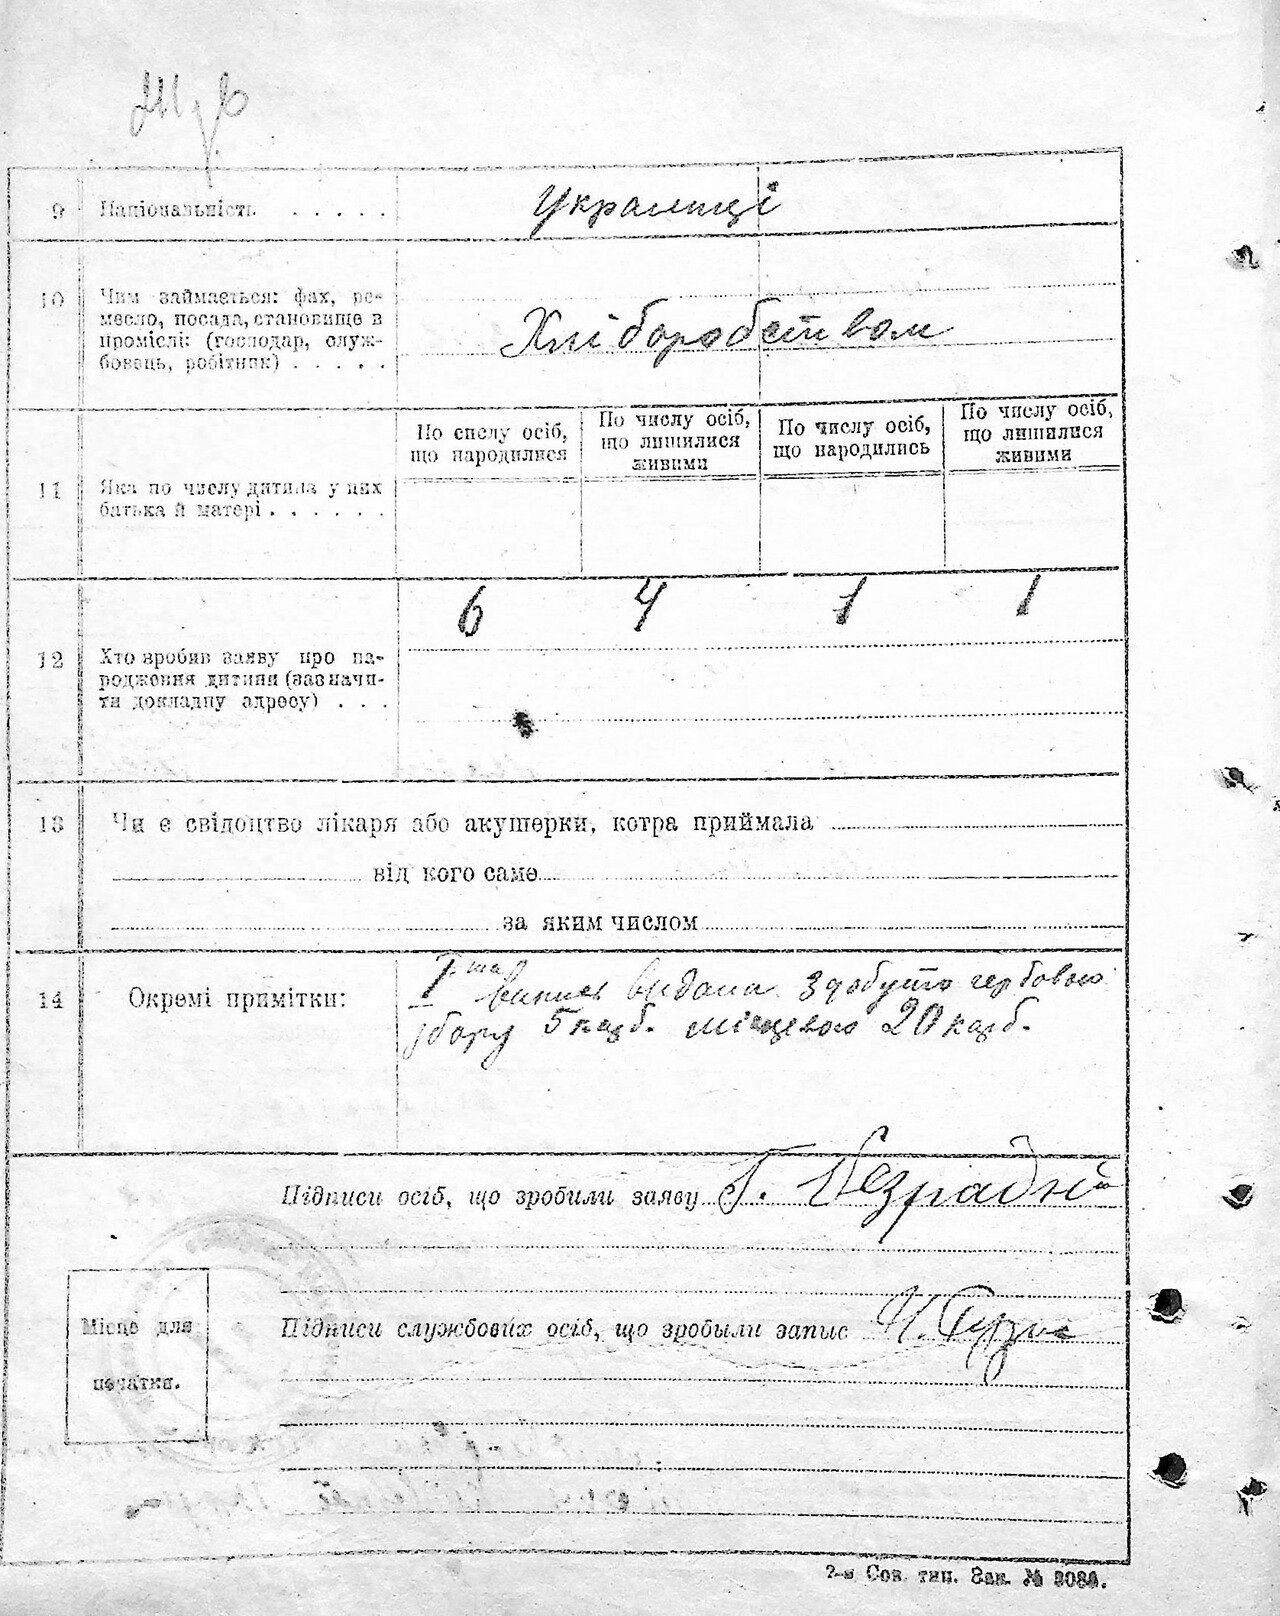 9 Національність . . . . .
Украинці
10 Чим займається: фах, ре-
месло, посада, становище в
промислі: (господар, служ-
бовець, робітник) . . . . .
Хліборобством
По числу осіб,
що народилися
По числу осіб,
що лишилися
живими
По числу осіб,
що народились
По числу осіб,
що лишилися
живими
11 Яка по числу дитина у них
батька й матері . . . . . .
6 4 1 1
12 Хто вробив заяву про на-
родження дитини (зазначи-
ти докладну адресу) . . .
13 Чи є свідоцтво лікаря або акушерки, котра приймала
від кого саме
за яким числом
14 Окремі примітки:
І ша випись видана здобуто гербового
збору 5 карб. місцевого 20 карб.
Підписи осіб, що зробили заяву Безрадній
Підписи службових осіб, що зробыли запис
Місце для
печатки.
2-я Сов. тип. Зак. № 3084.